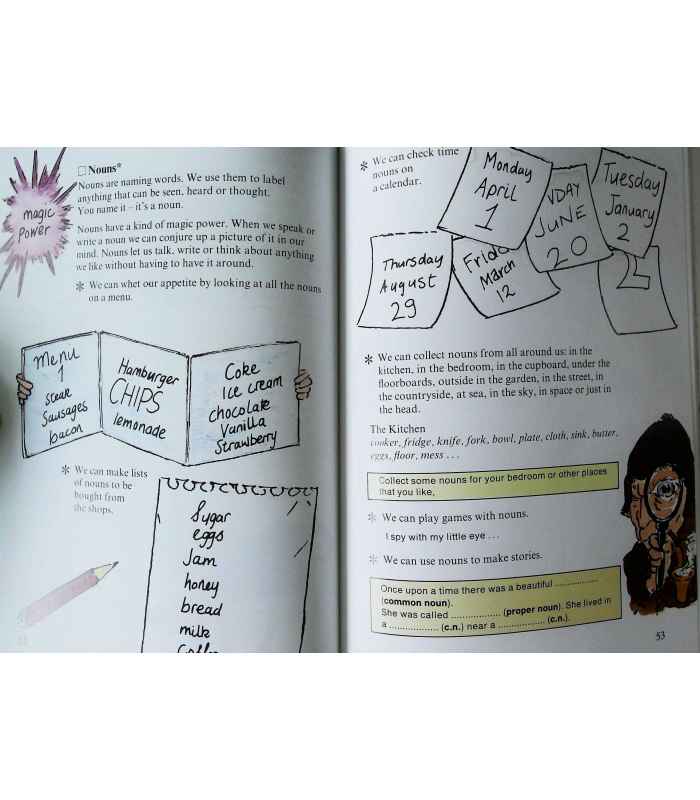 Nouns*
Nouns are naming words. We use them to label
anything that can be seen, heard or thought.
You name it – it's a noun.
magic
power
Nouns have a kind of magic power. When we speak or
write a noun we can conjure up a picture of it in our
mind. Nouns let us talk, write or think about anything
we like without having to have it around.
* We can whet our appetite by looking at all the nouns
on a menu.
Menu
1
Steak
Sausages
bacon
Hamburger
CHIPS
lemonade
Coke
Ice cream
chocolate
Vanilla
Strawberry
* We can make lists
of nouns to be
bought from
the shops.
Sugar
eggs
Jam
honey
bread
milk
* We can check time
nouns on
a calendar.
Monday
April
1
NDAY
JUNE
20
Tuesday
January
2
Thursday
August
29
Frida
March
12
2
* We can collect nouns from all around us: in the
kitchen, in the bedroom, in the cupboard, under the
floorboards, outside in the garden, in the street, in
the countryside, at sea, in the sky, in space or just in
the head.
The Kitchen
cooker, fridge, knife, fork, bowl, plate, cloth, sink, butter,
eggs, floor, mess . . .
Collect some nouns for your bedroom or other places
that you like,
* We can play games with nouns.
I spy with my little eye . . .
* We can use nouns to make stories.
Once upon a time there was a beautiful ..................
(common noun).
She was called .................. (proper noun). She lived in
a .................. (c.n.) near a .................. (c.n.).
53